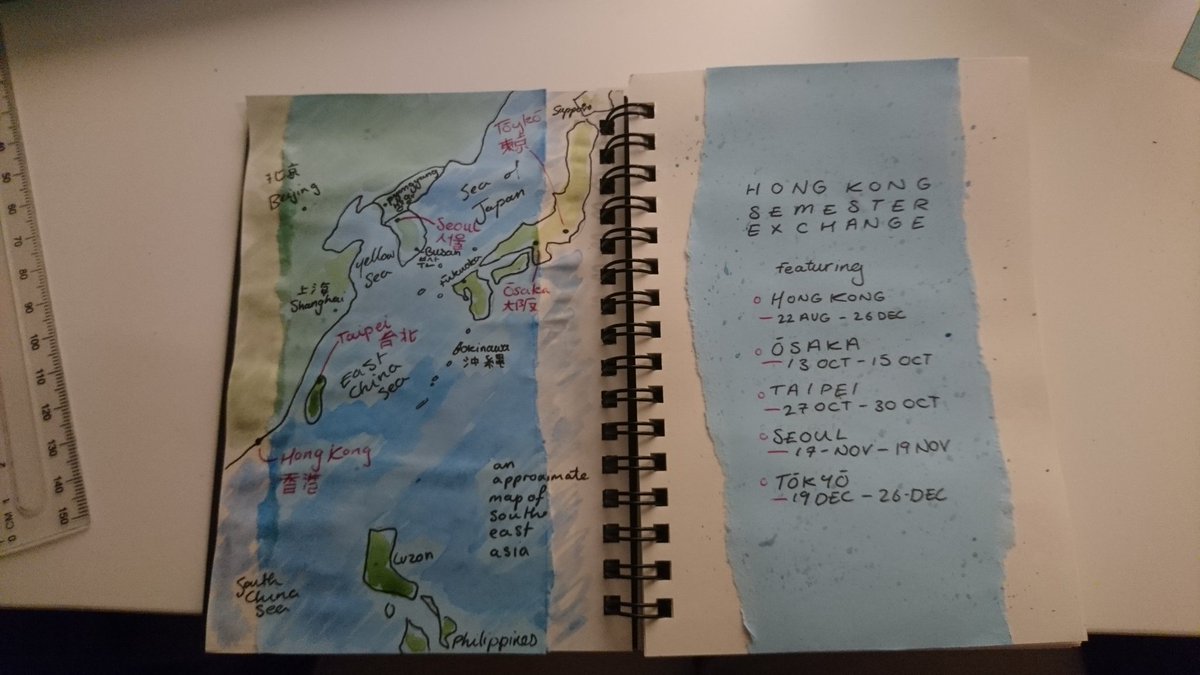 Sapporo
Tōykō
東京
北京
Beijing
Pyongyang
Sea of
Japan
Seoul
서울
Busan
부산
Yellow
Sea
Fukuoka
上海
Shanghai
Ōsaka
大阪
Taipei
台北
Okinawa
沖縄
East
China
Sea
Hong Kong
香港
an
approximate
map of
south
east
asia
Luzon
South
China
Sea
Philippines
HONG KONG
SEMESTER
EXCHANGE
featuring
HONG KONG
— 22 AUG – 26 DEC
ŌSAKA
— 13 OCT – 15 OCT
TAIPEI
— 27 OCT – 30 OCT
SEOUL
— 17 - NOV – 19 NOV
TŌKYŌ
— 19 DEC – 26 - DEC
50
60
70
80
90
100
110
120
130
140
150